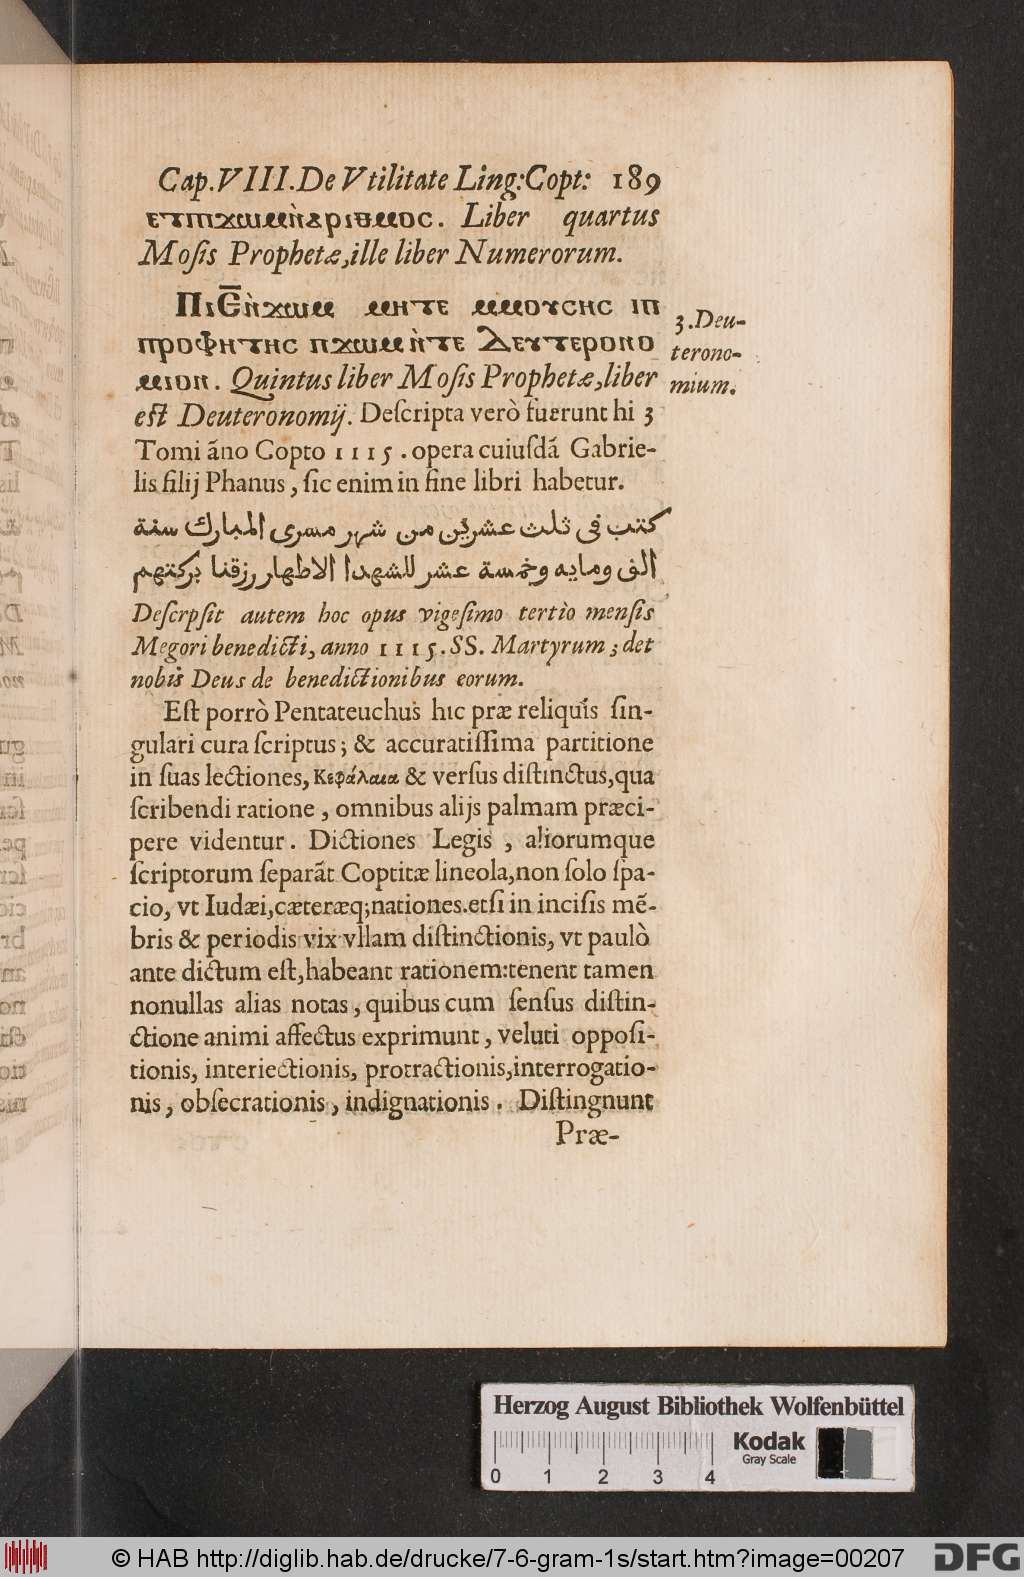 Cap. VIII. De Vtilitate Ling: Copt: 189
ⲉⲧⲡⲭⲱⲙⲛ̀ⲁⲣⲓⲑⲙⲟⲥ. Liber quartus
Mosis Prophetæ, ille liber Numerorum.
ⲡⲓⲉ̅ⲛ̀ϫⲱⲙ ⲙⲏⲧⲉ ⲙⲙⲟⲩⲥⲏⲥ ⲓⲡ
ⲡⲣⲟⲫⲏⲧⲏⲥ ⲡϫⲱⲙ ⲛ̀ⲧⲉ ⲇⲉⲩⲧⲉⲣⲟⲛⲟ
ⲙⲓⲟⲛ. Quintus liber Mosis Prophetæ, liber
3. Deu-
terono-
mium.
est Deuteronomij. Descripta verò fuerunt hi 3
Tomi ãno Copto 1115. opera cuiusdã Gabrie-
lis filij Phanus, sic enim in fine libri habetur.
كتب فى ثلث عشرين من شهر مسرى المبارك سنة
الف ومايه وخمسة عشر للشهدا الاطهار رزقنا بركتهم
Descrpsit autem hoc opus vigesimo tertio mensis
Megori benedicti, anno 1115. SS. Martyrum; det
nobis Deus de benedictionibus eorum.
Est porrò Pentateuchus hic præ reliquis sin-
gulari cura scriptus; & accuratissima partitione
in suas lectiones, Κεφάλαια & versus distinctus, qua
scribendi ratione, omnibus alijs palmam præci-
pere videntur. Dictiones Legis, aliorumque
scriptorum separãt Coptitæ lineola, non solo spa-
cio, vt Iudæi, cæteræq; nationes. etsi in incisis mẽ-
bris & periodis vix vllam distinctionis, vt paulò
ante dictum est, habeant rationem: tenent tamen
nonullas alias notas, quibus cum sensus distin-
ctione animi affectus exprimunt, veluti opposi-
tionis, interiectionis, protractionis, interrogatio-
nis, obsecrationis, indignationis. Distingnunt
Præ-
Herzog August Bibliothek Wolfenbüttel
Kodak
Gray Scale
0 1 2 3 4
© HAB http://diglib.hab.de/drucke/7-6-gram-1s/start.htm?image=00207
DFG